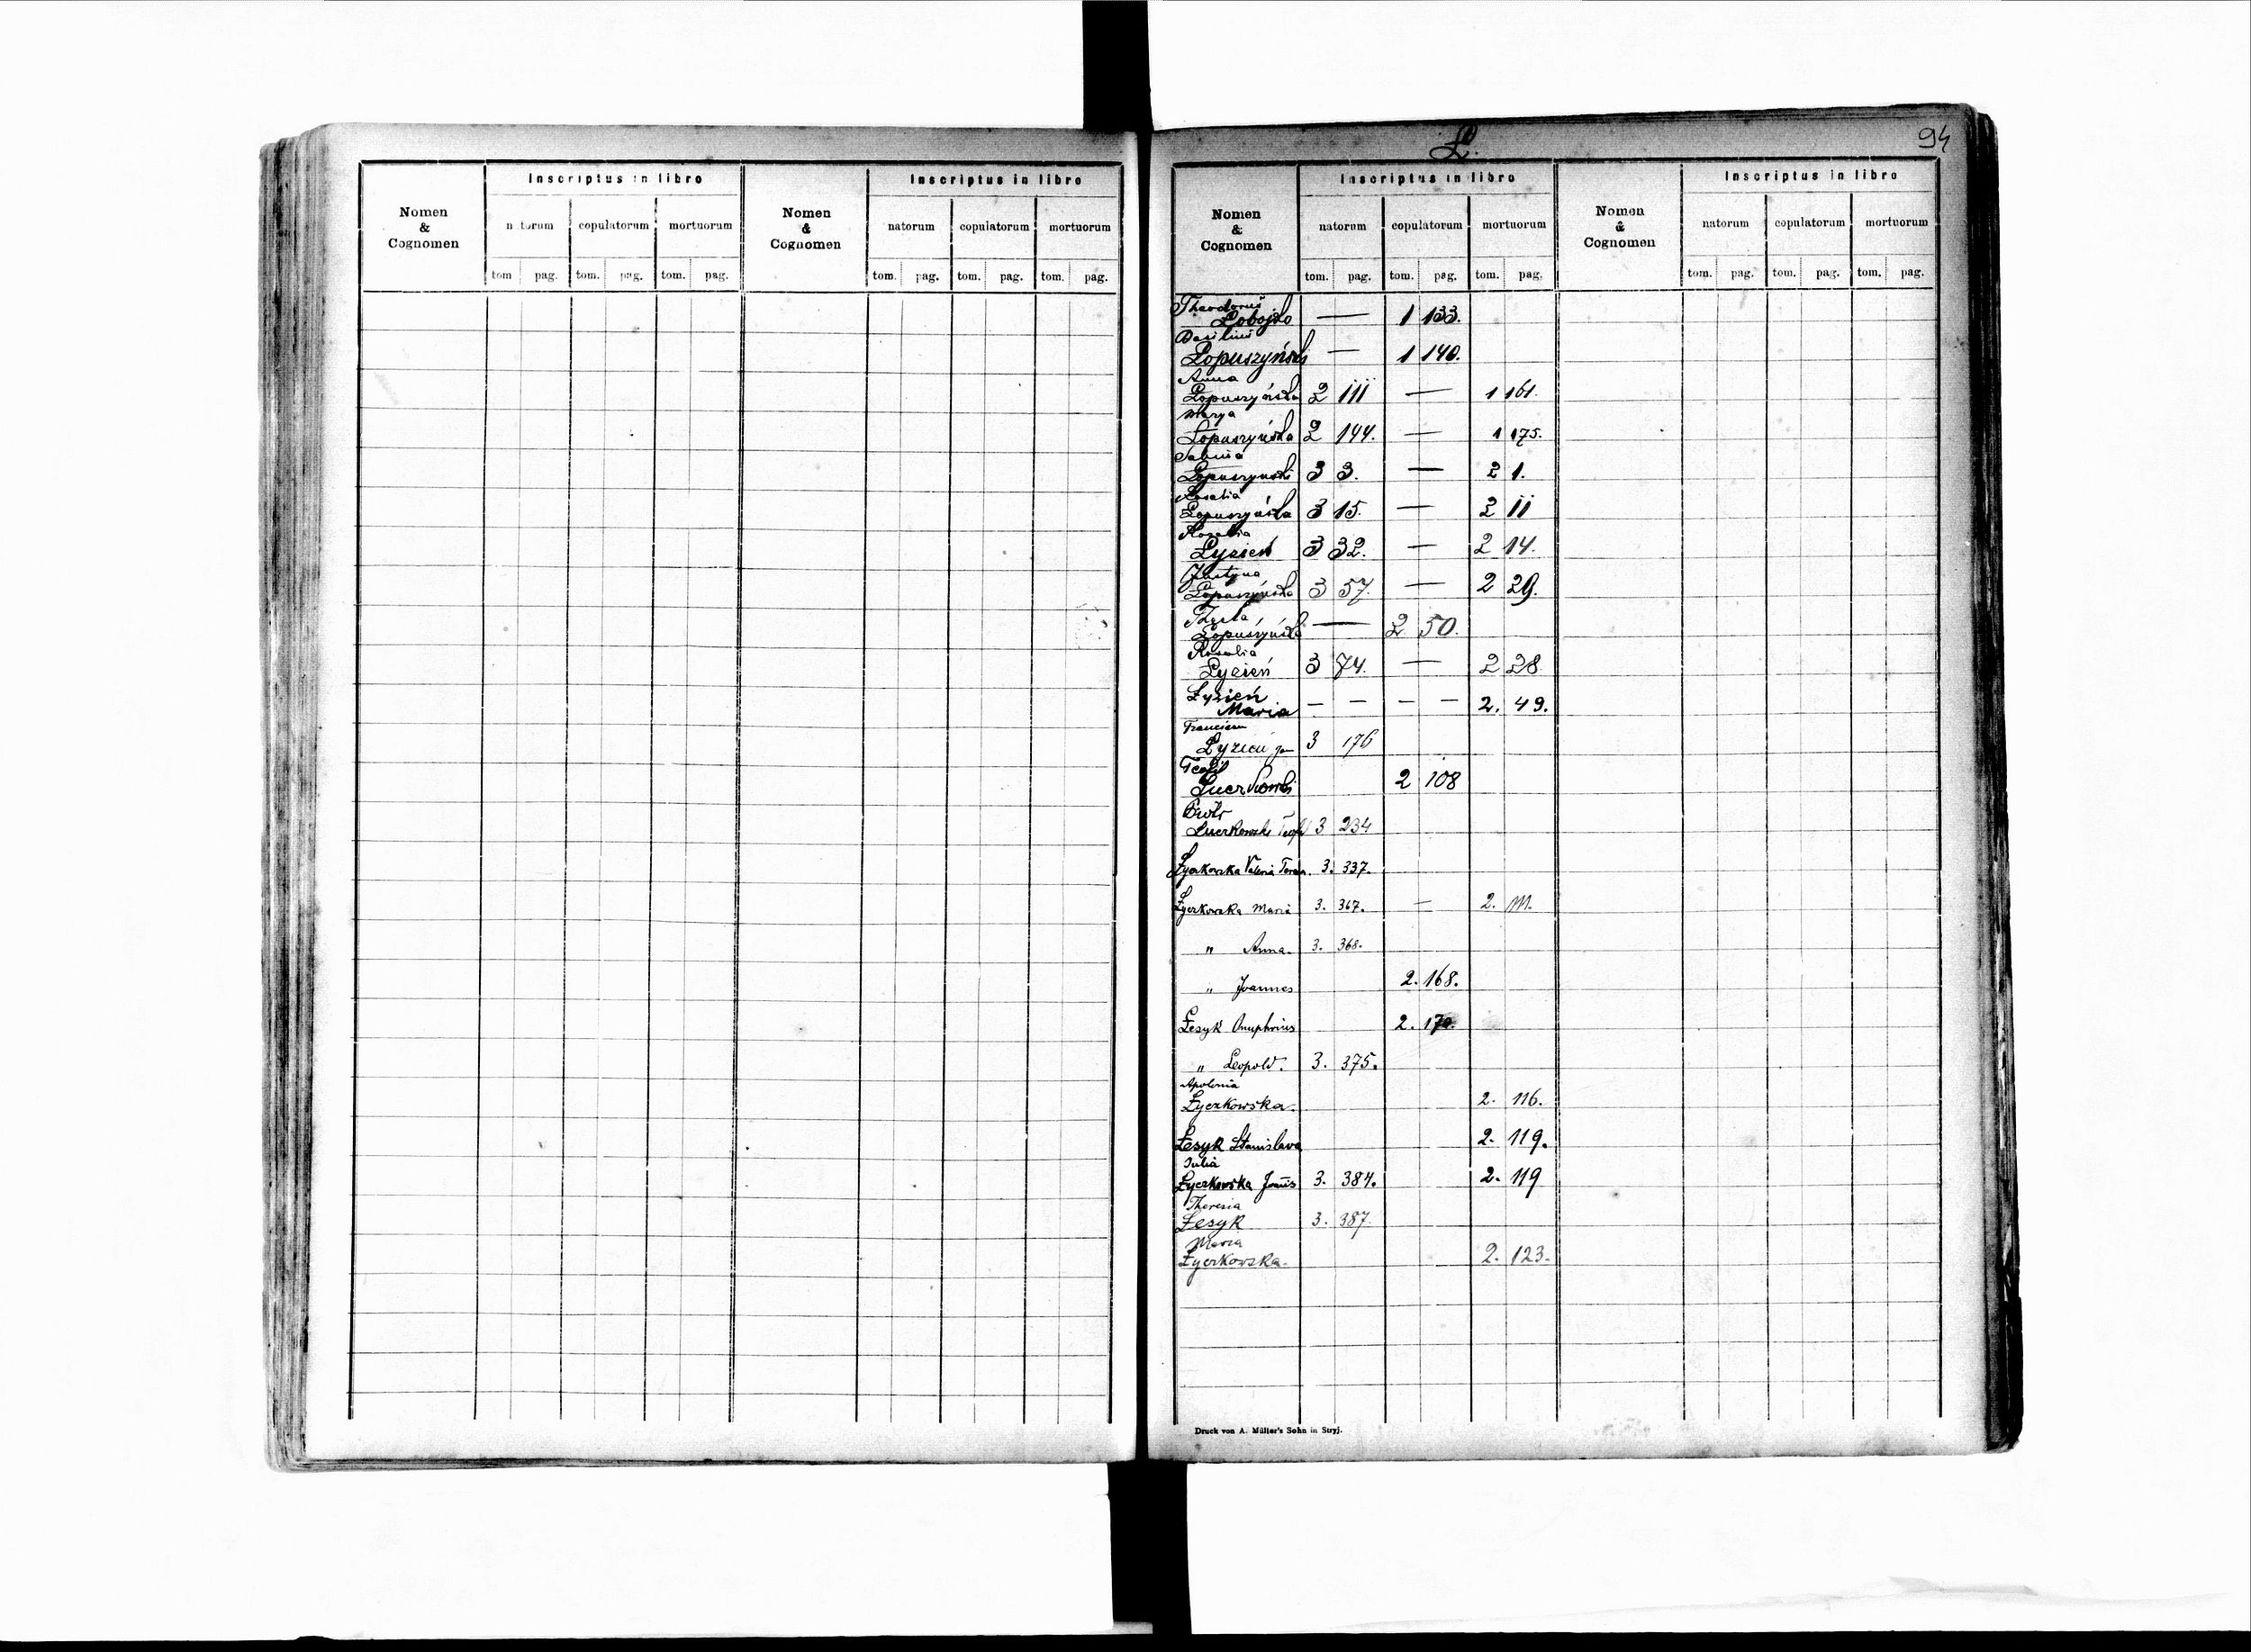 Ł.
94
Inscriptus in libro
Inscriptus in libro
Nomen & Cognomen
n torum copulatorum mortuorum
Nomen & Cognomen
natorum copulatorum mortuorum
tom pag. tom. pag. tom. pag.
tom. pag. tom. pag. tom. pag.
Inscriptus in libro
Inscriptus in libro
Nomen & Cognomen
natorum copulatorum mortuorum
Nomen & Cognomen
natorum copulatorum mortuorum
tom. pag. tom. pag. tom. pag.
tom. pag. tom. pag. tom. pag.
Theodorus
Łobojko — 1 133.
Basilius
Łopuszyński — 1 140.
Anna
Łopuszyńska 2 111 — 1 161.
Marya
Łopuszyńska 2 144. — 1 175.
Łopuszynski 3 3. — 2 1.
Rosalia
Łopuszyńska 3 15. — 2 11
Rozalia
Łyzień 3 32. — 2 14.
Justyna
Łopuszyńska 3 57. — 2 29.
Tekla
Łopuszyńska — 2 50.
Rosalia
Łyzień 3 74. — 2 28
Łyzień
Maria — — — — 2. 49.
Łyzień Jan 3 176
Teofil
Łuczkowski 2 108
Piotr
Łuczkowski Teofil 3 234
Łyczkowska Valeria 3. 337.
Łyczkowska Maria 3. 367. — 2. 111.
" Anna. 3. 368.
" Joannes 2. 168.
Łesyk Onuphrius 2. 170.
" Leopold. 3. 375.
Apolonia
Łyczkowska. 2. 116.
Łesyk Stanislava 2. 119.
Julia
Łyczkowska Joañis 3. 384. 2. 119
Theresia
Łesyk 3. 387.
Maria
Łyczkowska. 2. 123.
Druck von A. Müller's Sohn in Stryj.